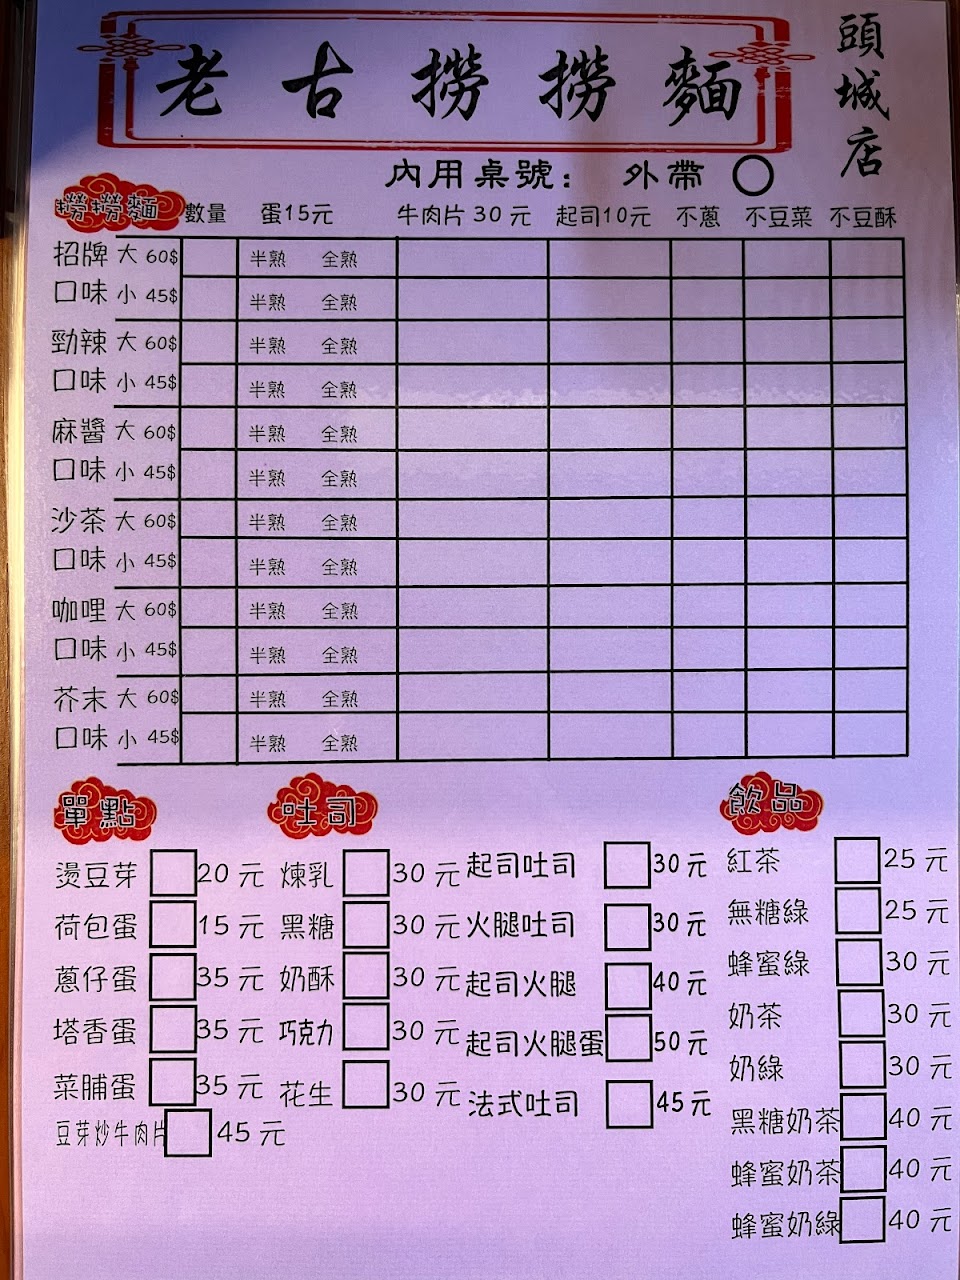 老古撈撈麵
頭城店
內用桌號: 外帶 ○
撈撈麵 數量 蛋15元 牛肉片 30 元 起司10元 不蔥 不豆菜 不豆酥
招牌 大 60$ 半熟 全熟
口味 小 45$ 半熟 全熟
勁辣 大 60$ 半熟 全熟
口味 小 45$ 半熟 全熟
麻醬 大 60$ 半熟 全熟
口味 小 45$ 半熟 全熟
沙茶 大 60$ 半熟 全熟
口味 小 45$ 半熟 全熟
咖哩 大 60$ 半熟 全熟
口味 小 45$ 半熟 全熟
芥末 大 60$ 半熟 全熟
口味 小 45$ 半熟 全熟
單點
燙豆芽 20 元
荷包蛋 15 元
蔥仔蛋 35 元
塔香蛋 35 元
菜脯蛋 35 元
豆芽炒牛肉片 45 元
吐司
煉乳 30 元
黑糖 30 元
奶酥 30 元
巧克力 30 元
花生 30 元
起司吐司 30 元
火腿吐司 30 元
起司火腿 40 元
起司火腿蛋 50 元
法式吐司 45 元
飲品
紅茶 25 元
無糖綠 25 元
蜂蜜綠 30 元
奶茶 30 元
奶綠 30 元
黑糖奶茶 40 元
蜂蜜奶茶 40 元
蜂蜜奶綠 40 元